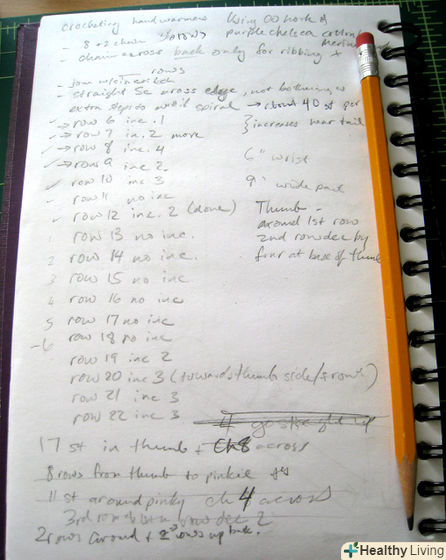 crocheting handwarmers Using 00 hook &
8 + 2 chain rows purple chelsea cotton
chain across back only for ribbing + merino
rows
straight sc across edge, not bothering w
extra steps do until spiral → about 40 st per
→ row 6 inc. 1 } increases near tail
→ row 7 in. 2 more
→ row 8 inc. 4
→ row 9 inc 2. 6" wrist
row 10 inc 3 9" wide part
row 11 no inc
row 12 inc. 2 (done) Thumb -
1 row 13 no inc. around 1st row
2 row 14 no inc. 2nd row dec by
3 row 15 no inc four at base of thumb
4 row 16 no inc
5 row 17 no inc
-6 row 18 no inc
row 19 inc 2
row 20 inc 3 (towards thumb side/ s row)
row 21 inc 3
row 22 inc 3
go straight up
17 st in thumb + Ch 8 across
8 rows from thumb to pinkie
11 st around pinky ch 4 across
3rd row dec 2
2 rows around + 2 rows up
Healthy Living